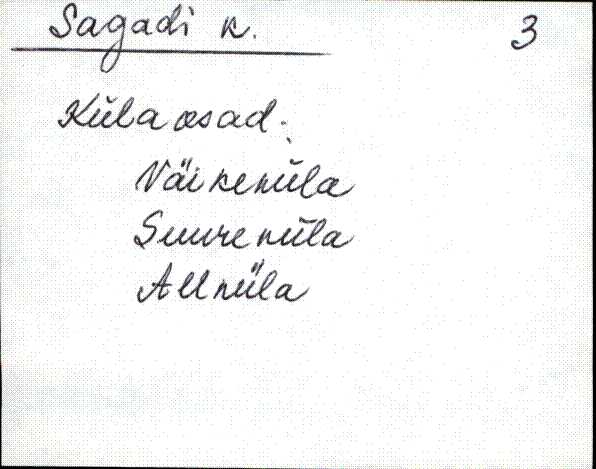 Sagadi k. 3
Küla osad:
Väikeküla
Suureküla
Allküla